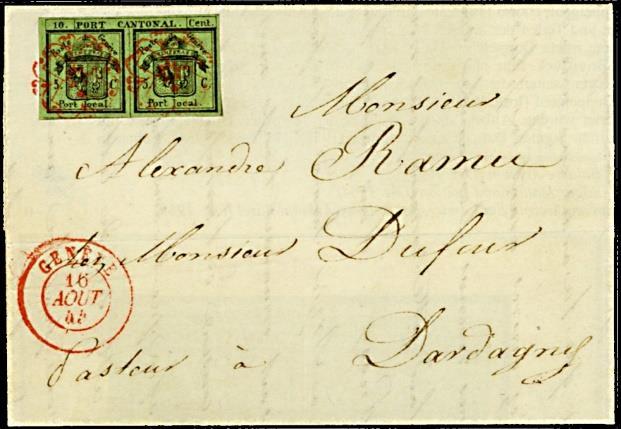 10. PORT CANTONAL. Cent.
5. C 5. C
Port local. Port local.
Monsieur
Alexandre Ramu
Monsieur Dufour
Pasteur à Dardagny
GENÈVE
16
AOUT